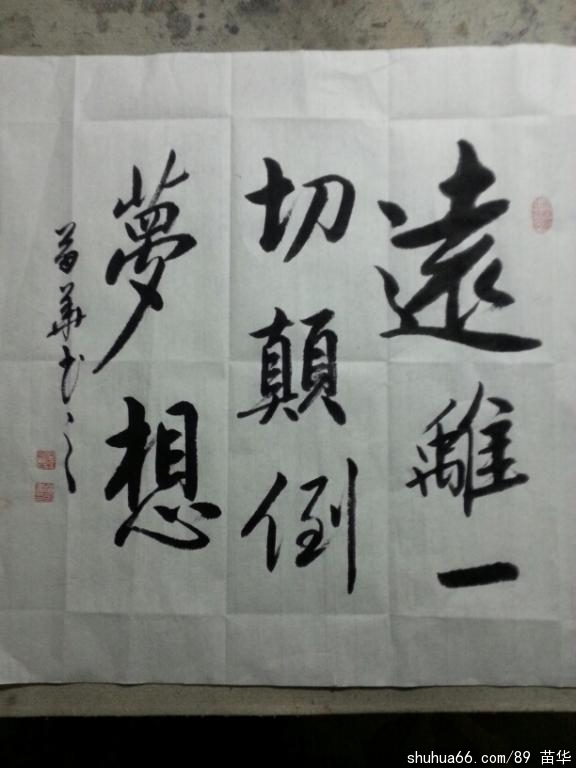 遠離一
切顛倒
夢想
苗華书之
shuhua66.com/89 苗华